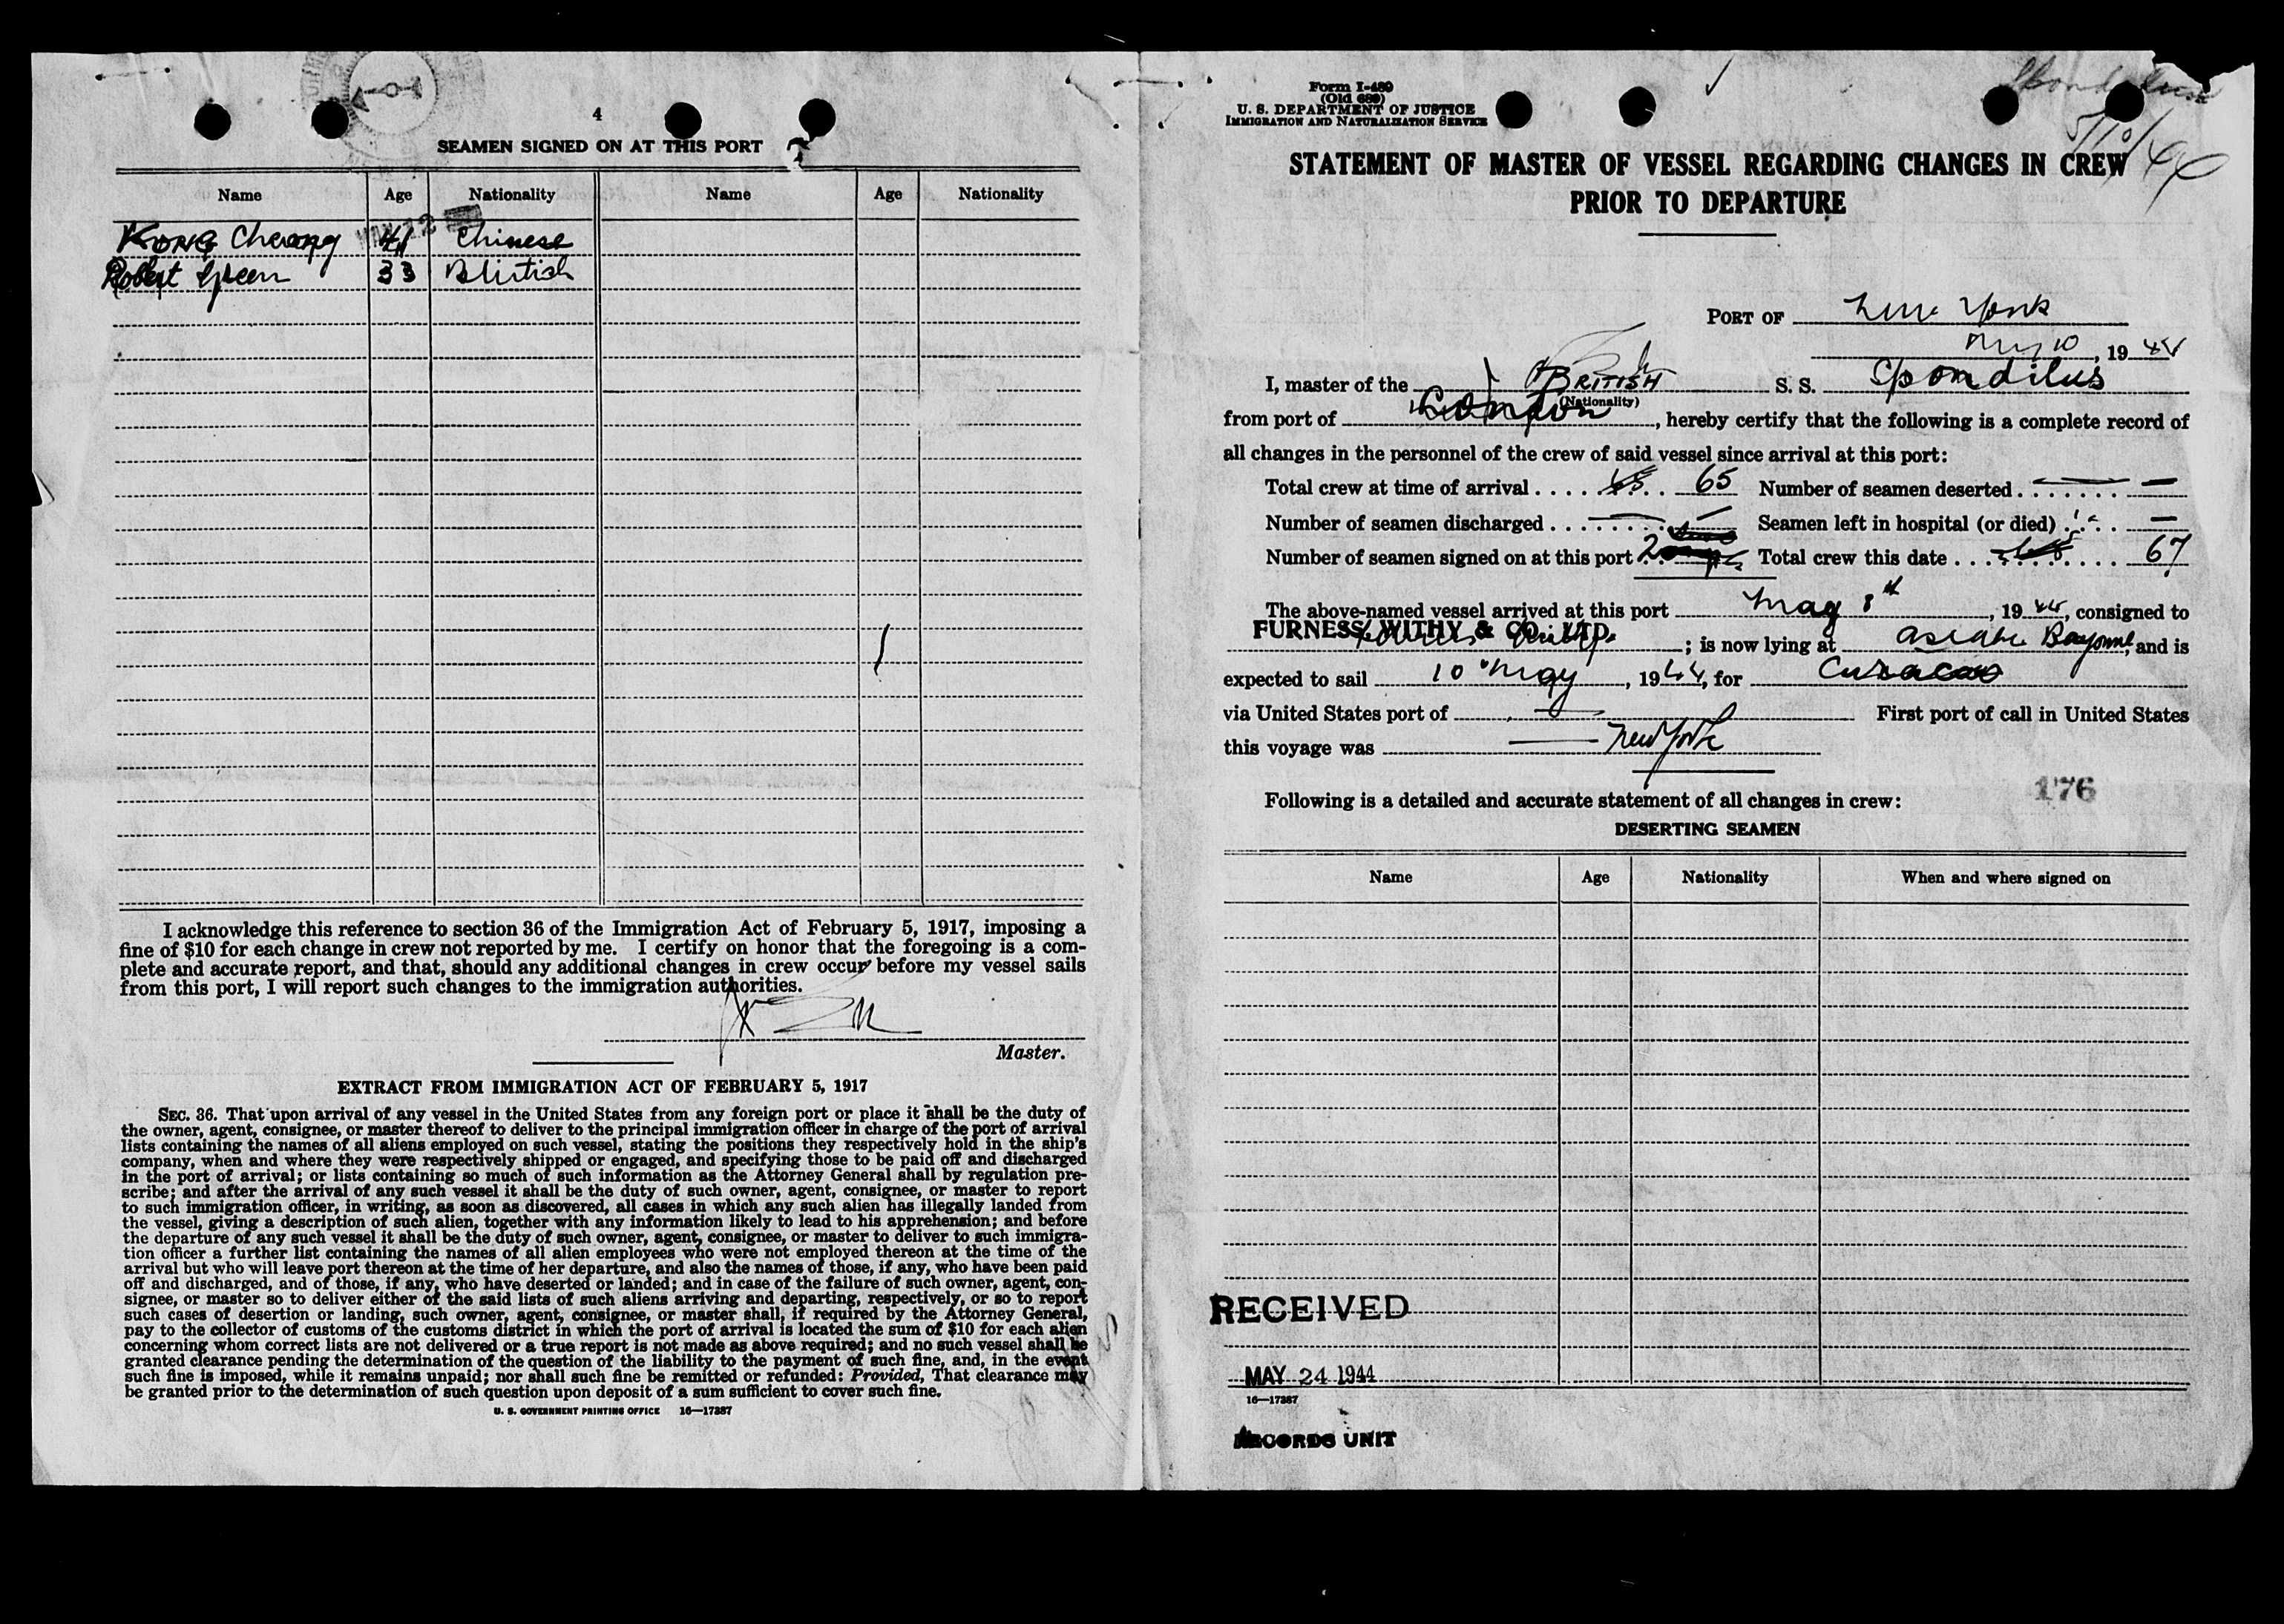 4
SEAMEN SIGNED ON AT THIS PORT
Name Age Nationality Name Age Nationality
Kong Cheong 41 Chinese
Robert Green 33 British
I acknowledge this reference to section 36 of the Immigration Act of February 5, 1917, imposing a
fine of $10 for each change in crew not reported by me. I certify on honor that the foregoing is a com-
plete and accurate report, and that, should any additional changes in crew occur before my vessel sails
from this port, I will report such changes to the immigration authorities.
Master.
EXTRACT FROM IMMIGRATION ACT OF FEBRUARY 5, 1917
SEC. 36. That upon arrival of any vessel in the United States from any foreign port or place it shall be the duty of
the owner, agent, consignee, or master thereof to deliver to the principal immigration officer in charge of the port of arrival
lists containing the names of all aliens employed on such vessel, stating the positions they respectively hold in the ship's
company, when and where they were respectively shipped or engaged, and specifying those to be paid off and discharged
in the port of arrival; or lists containing so much of such information as the Attorney General shall by regulation pre-
scribe; and after the arrival of any such vessel it shall be the duty of such owner, agent, consignee, or master to report
to such immigration officer, in writing, as soon as discovered, all cases in which any such alien has illegally landed from
the vessel, giving a description of such alien, together with any information likely to lead to his apprehension; and before
the departure of any such vessel it shall be the duty of such owner, agent, consignee, or master to deliver to such immigra-
tion officer a further list containing the names of all alien employees who were not employed thereon at the time of the
arrival but who will leave port thereon at the time of her departure, and also the names of those, if any, who have been paid
off and discharged, and of those, if any, who have deserted or landed; and in case of the failure of such owner, agent, con-
signee, or master so to deliver either of the said lists of such aliens arriving and departing, respectively, or so to report
such cases of desertion or landing, such owner, agent, consignee, or master shall, if required by the Attorney General,
pay to the collector of customs of the customs district in which the port of arrival is located the sum of $10 for each alien
concerning whom correct lists are not delivered or a true report is not made as above required; and no such vessel shall be
granted clearance pending the determination of the question of the liability to the payment of such fine, and, in the event
such fine is imposed, while it remains unpaid; nor shall such fine be remitted or refunded: Provided, That clearance may
be granted prior to the determination of such question upon deposit of a sum sufficient to cover such fine.
U. S. GOVERNMENT PRINTING OFFICE 16—17387
Form I-489
(Old 689)
U. S. DEPARTMENT OF JUSTICE
IMMIGRATION AND NATURALIZATION SERVICE
5/10/44
STATEMENT OF MASTER OF VESSEL REGARDING CHANGES IN CREW
PRIOR TO DEPARTURE
PORT OF New York
May 10, 1944
I, master of the BRITISH S. S. Spondilus
(Nationality)
from port of London, hereby certify that the following is a complete record of
all changes in the personnel of the crew of said vessel since arrival at this port:
Total crew at time of arrival 65 Number of seamen deserted —
Number of seamen discharged — Seamen left in hospital (or died) —
Number of seamen signed on at this port 2 Total crew this date 67
The above-named vessel arrived at this port May 8th, 1944, consigned to
FURNESS WITHY & CO. LTD. ; is now lying at Bayonne, and is
expected to sail 10 May, 1944, for Curacao
via United States port of — First port of call in United States
this voyage was — New York
176
Following is a detailed and accurate statement of all changes in crew:
DESERTING SEAMEN
Name Age Nationality When and where signed on
RECEIVED
MAY 24 1944
16—17387
RECORDS UNIT